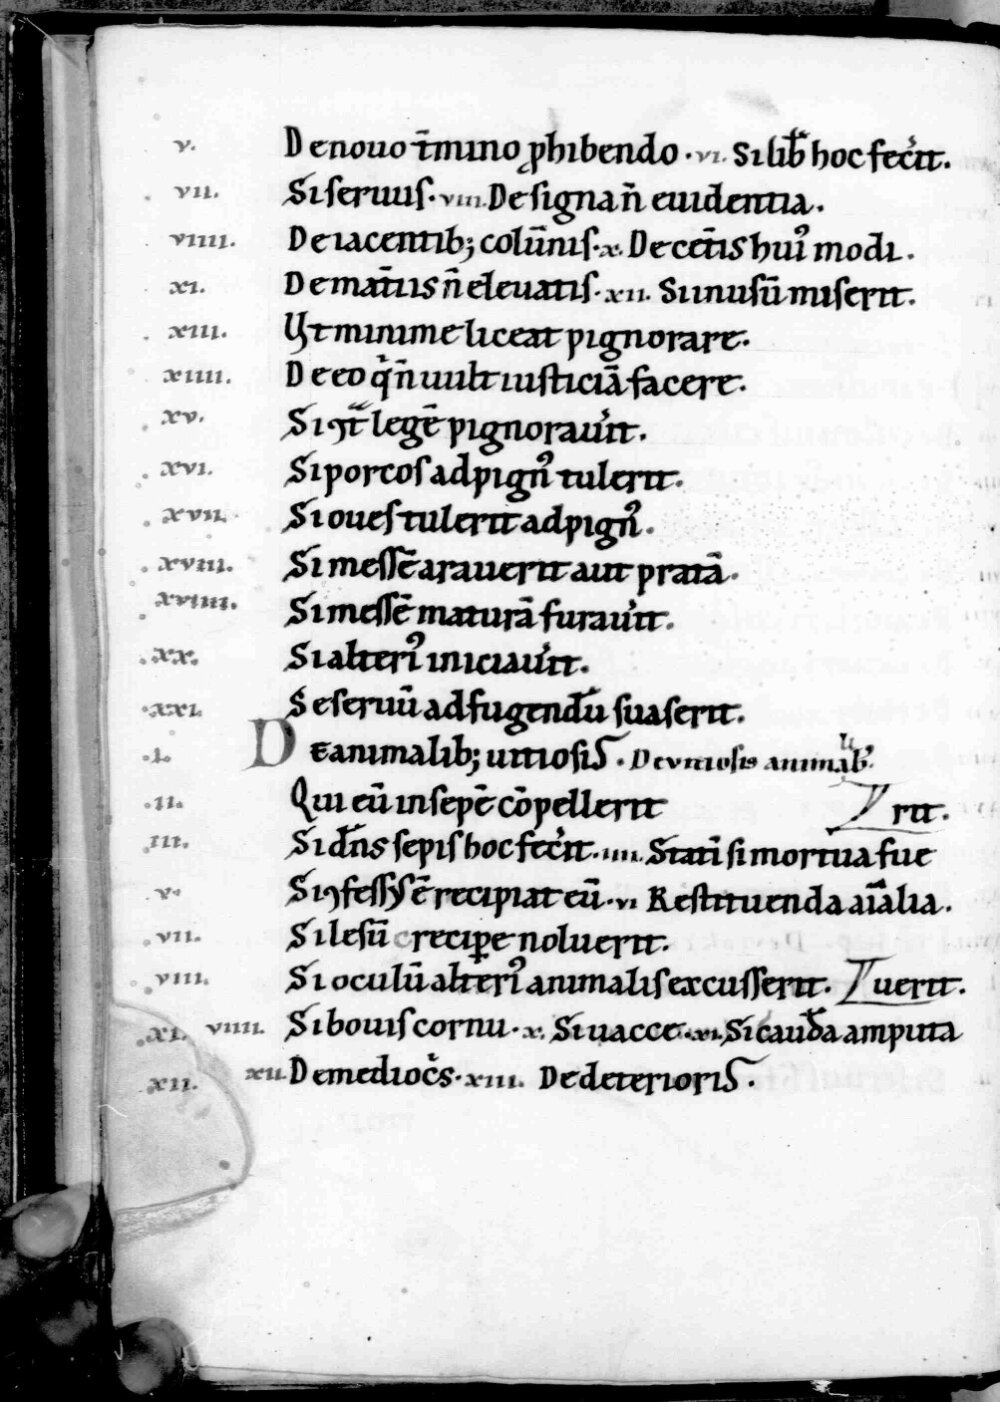 v. De nouo t̄mino ꝓhibendo · vi. Si lib̄ hoc fec̓it.
vii. Si seruus · viii. De signa n̄ euidentia.
viiii. De iacentib; colūnis · x. De cet̄is hui᾿ modi.
xi. De mat̄iis n̄ eleuatis · xii. Si in usū miserit.
xiii. Vt minime liceat pignorare.
xiiii. De eo q̓ n̄ uult iusticiā facere.
xv. Si ꝯt̄ legē pignorau̓it.
xvi. Si porcos ad pign᾿ tulerit.
xvii. Si oues tulerit ad pign᾿.
xviii. Si messē arauerit aut pratā.
xviiii. Si messē maturā furau̓it.
xx. Si alteri᾿ iniciau̓it.
xxi. Se seruū ad fugendū suaserit.
.i. De animalib; uitiosis. De vitiosis animalib᾿.
.ii. Qui eū in sepē cōpellerit rit.
iii. Si dn̄s sepis hoc fec̓it. iiii. Statī si mortua fue
v. Si ꝯfessꝰ ē recipiat eū · vi Restituenda aīalia.
.vii. Si lesū recipe noluerit.
viii. Si oculū alteri᾿ animalis excusserit. uerit.
.xi. viiii. Si bouis cornu · x. Si uacce. xi. Si cauda amputa
xii. xii. De medioc̓s · xiii. De deterioris.